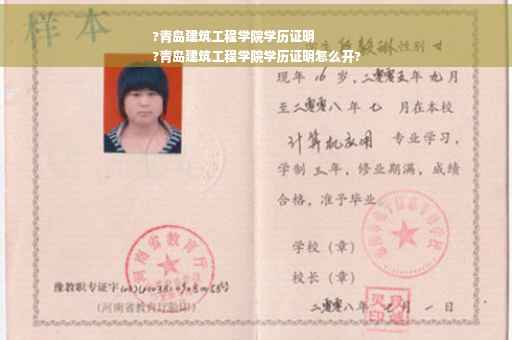 样本
?青岛建筑工程学院学历证明
?青岛建筑工程学院学历证明怎么开?
性别 女
现年 16 岁,二零零五年 九月
至二零零八年 七 月在本校
计算机应用 专业学习,
学制 三 年,修业期满,成绩
合格,准予毕业
学校(章)
校长(章)
二零零八年 月 一 日
河南省教育厅
豫教职专证字
(河南省教育厅验印)